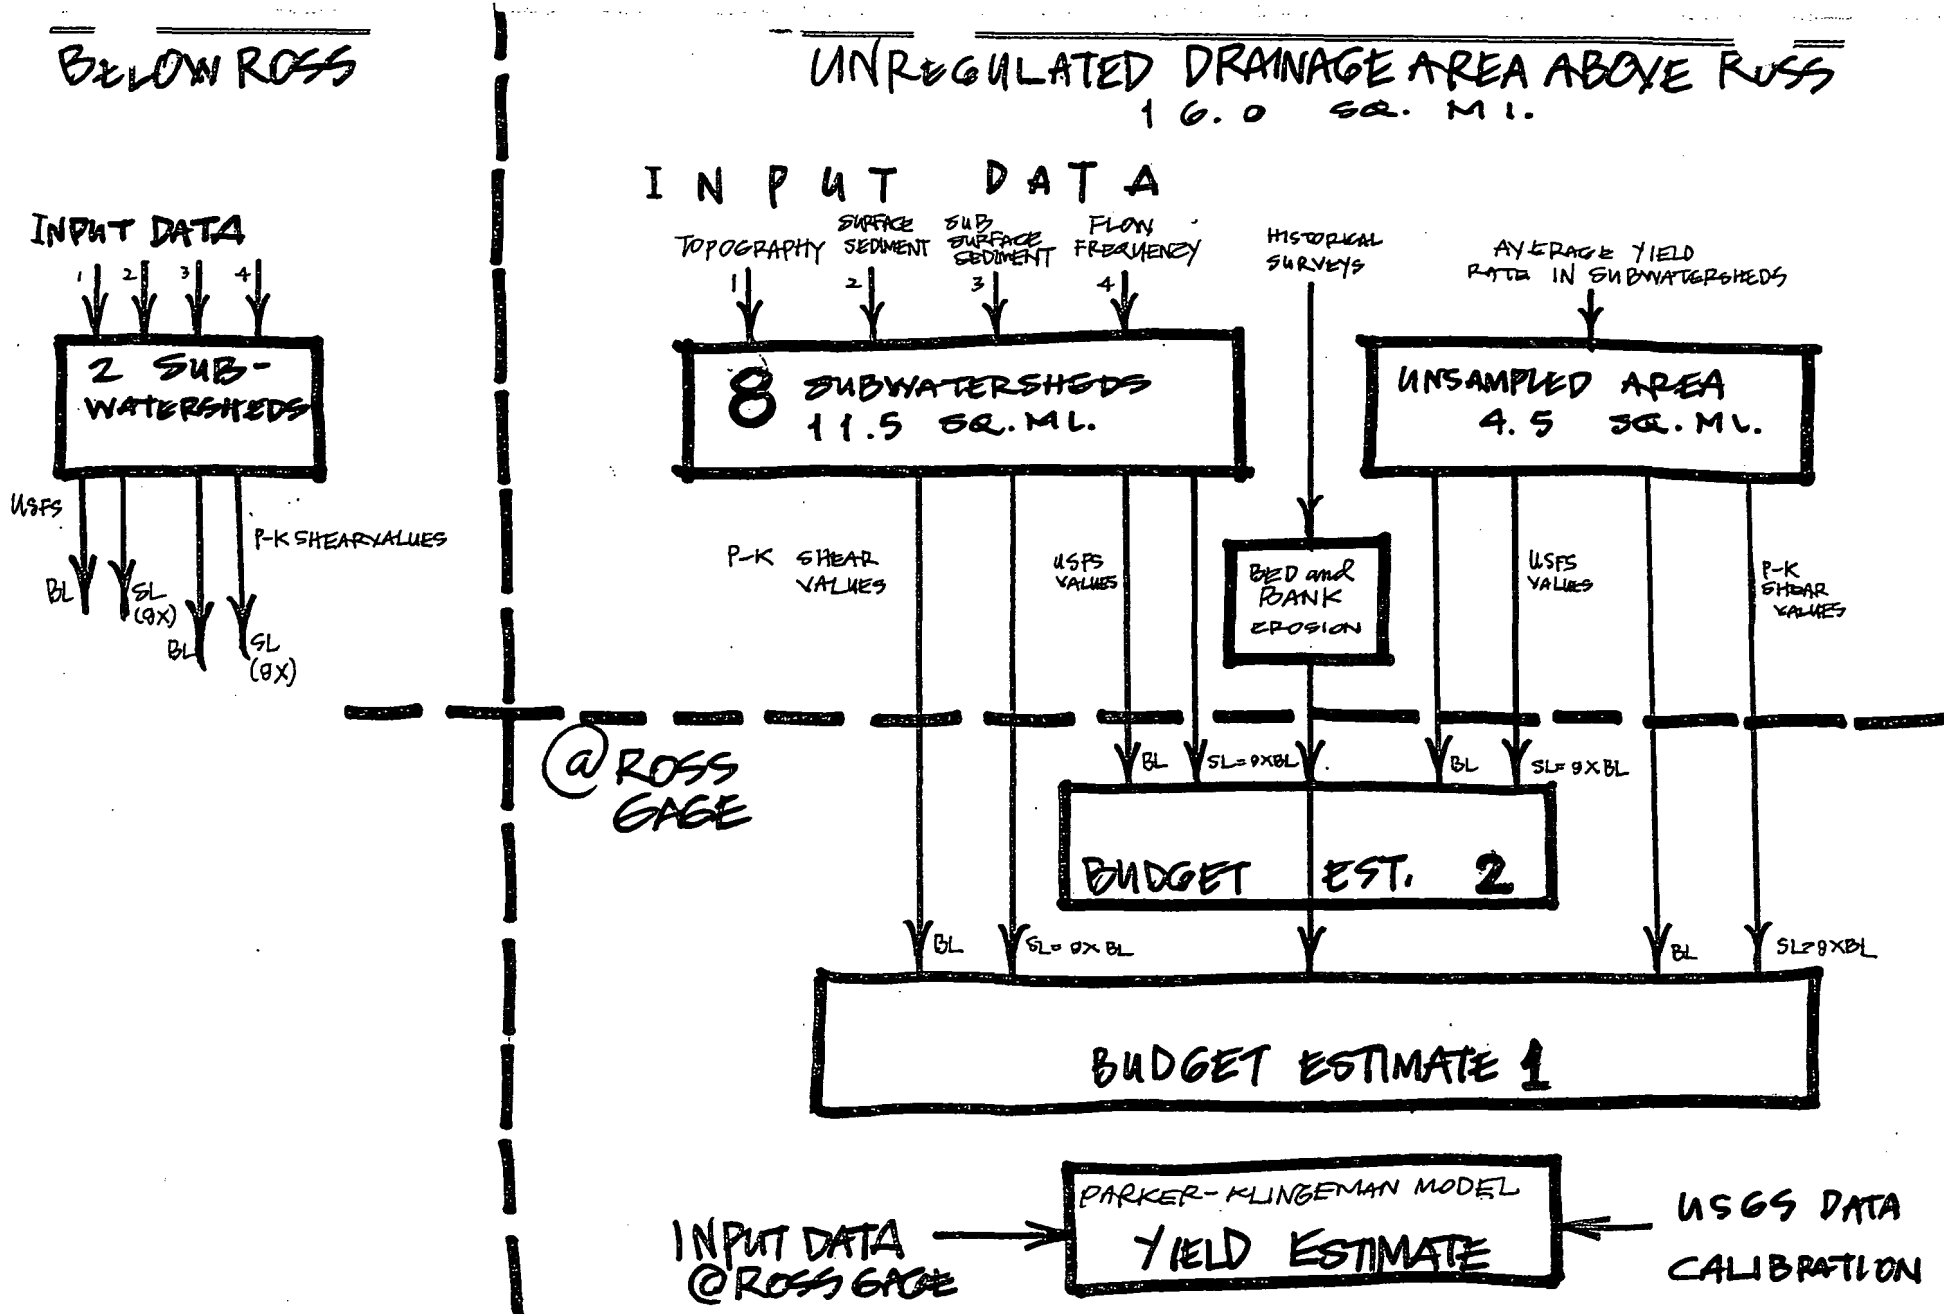 BELOW ROSS
INPUT DATA
1 2 3 4
2 SUB-
WATERSHEDS
USFS
P-K SHEAR VALUES
BL
SL
(9X)
BL
SL
(9X)
UNREGULATED DRAINAGE AREA ABOVE ROSS
16.0 SQ. MI.
INPUT DATA
TOPOGRAPHY
SURFACE
SEDIMENT
SUB
SURFACE
SEDIMENT
FLOW
FREQUENCY
HISTORICAL
SURVEYS
AVERAGE YIELD
RATE IN SUBWATERSHEDS
1 2 3 4
8 SUBWATERSHEDS
11.5 SQ. MI.
UNSAMPLED AREA
4.5 SQ. MI.
P-K SHEAR
VALUES
USFS
VALUES
BED and
BANK
EROSION
USFS
VALUES
P-K
SHEAR
VALUES
@ ROSS
GAGE
BL
SL=9XBL
BL
SL=9XBL
BUDGET EST. 2
BL
SL=9XBL
BL
SL=9XBL
BUDGET ESTIMATE 1
PARKER-KLINGEMAN MODEL
YIELD ESTIMATE
INPUT DATA
@ROSS GAGE
USGS DATA
CALIBRATION